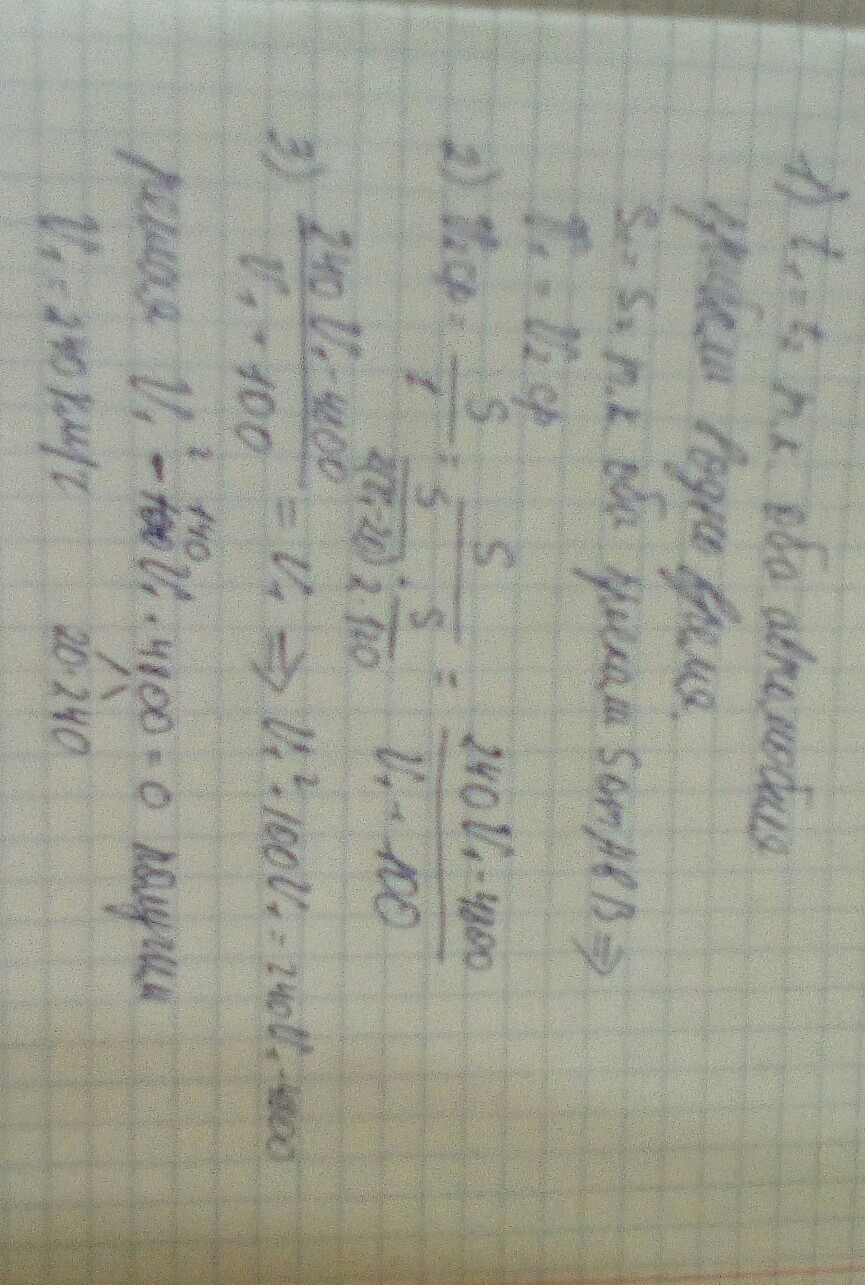 1) t₁ = t₂ т.к. оба автомобиля
прибыли в одно время.
S₁ = S₂ т.к. оба приехали S от A и B ⇒
V₁ = V₂ ср
2) V₂ср = S/t = S / (S/(2(V₁-20)) + S/(2·120)) = (240V₁ - 4800)/(V₁ + 100)
3) (240V₁ - 4800)/(V₁ + 100) = V₁ ⇒ V₁² + 100V₁ = 240V₁ - 4800
решая V₁² - 140V₁ + 4800 = 0 получим
V₁ = 240 км/с 20·240